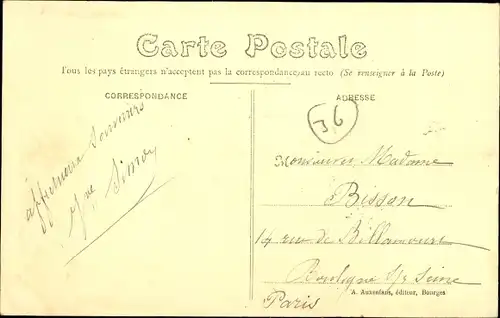 Carte Postale
Tous les pays étrangers n'acceptent pas la correspondance au recto (Se renseigner à la Poste)
CORRESPONDANCE
ADRESSE
36
affectueux Souvenirs
Simon
Monsieur, Madame
Bisson
14 rue de Billancourt
Boulogne s/ Seine
A. Auxenfans, éditeur, Bourges
Paris